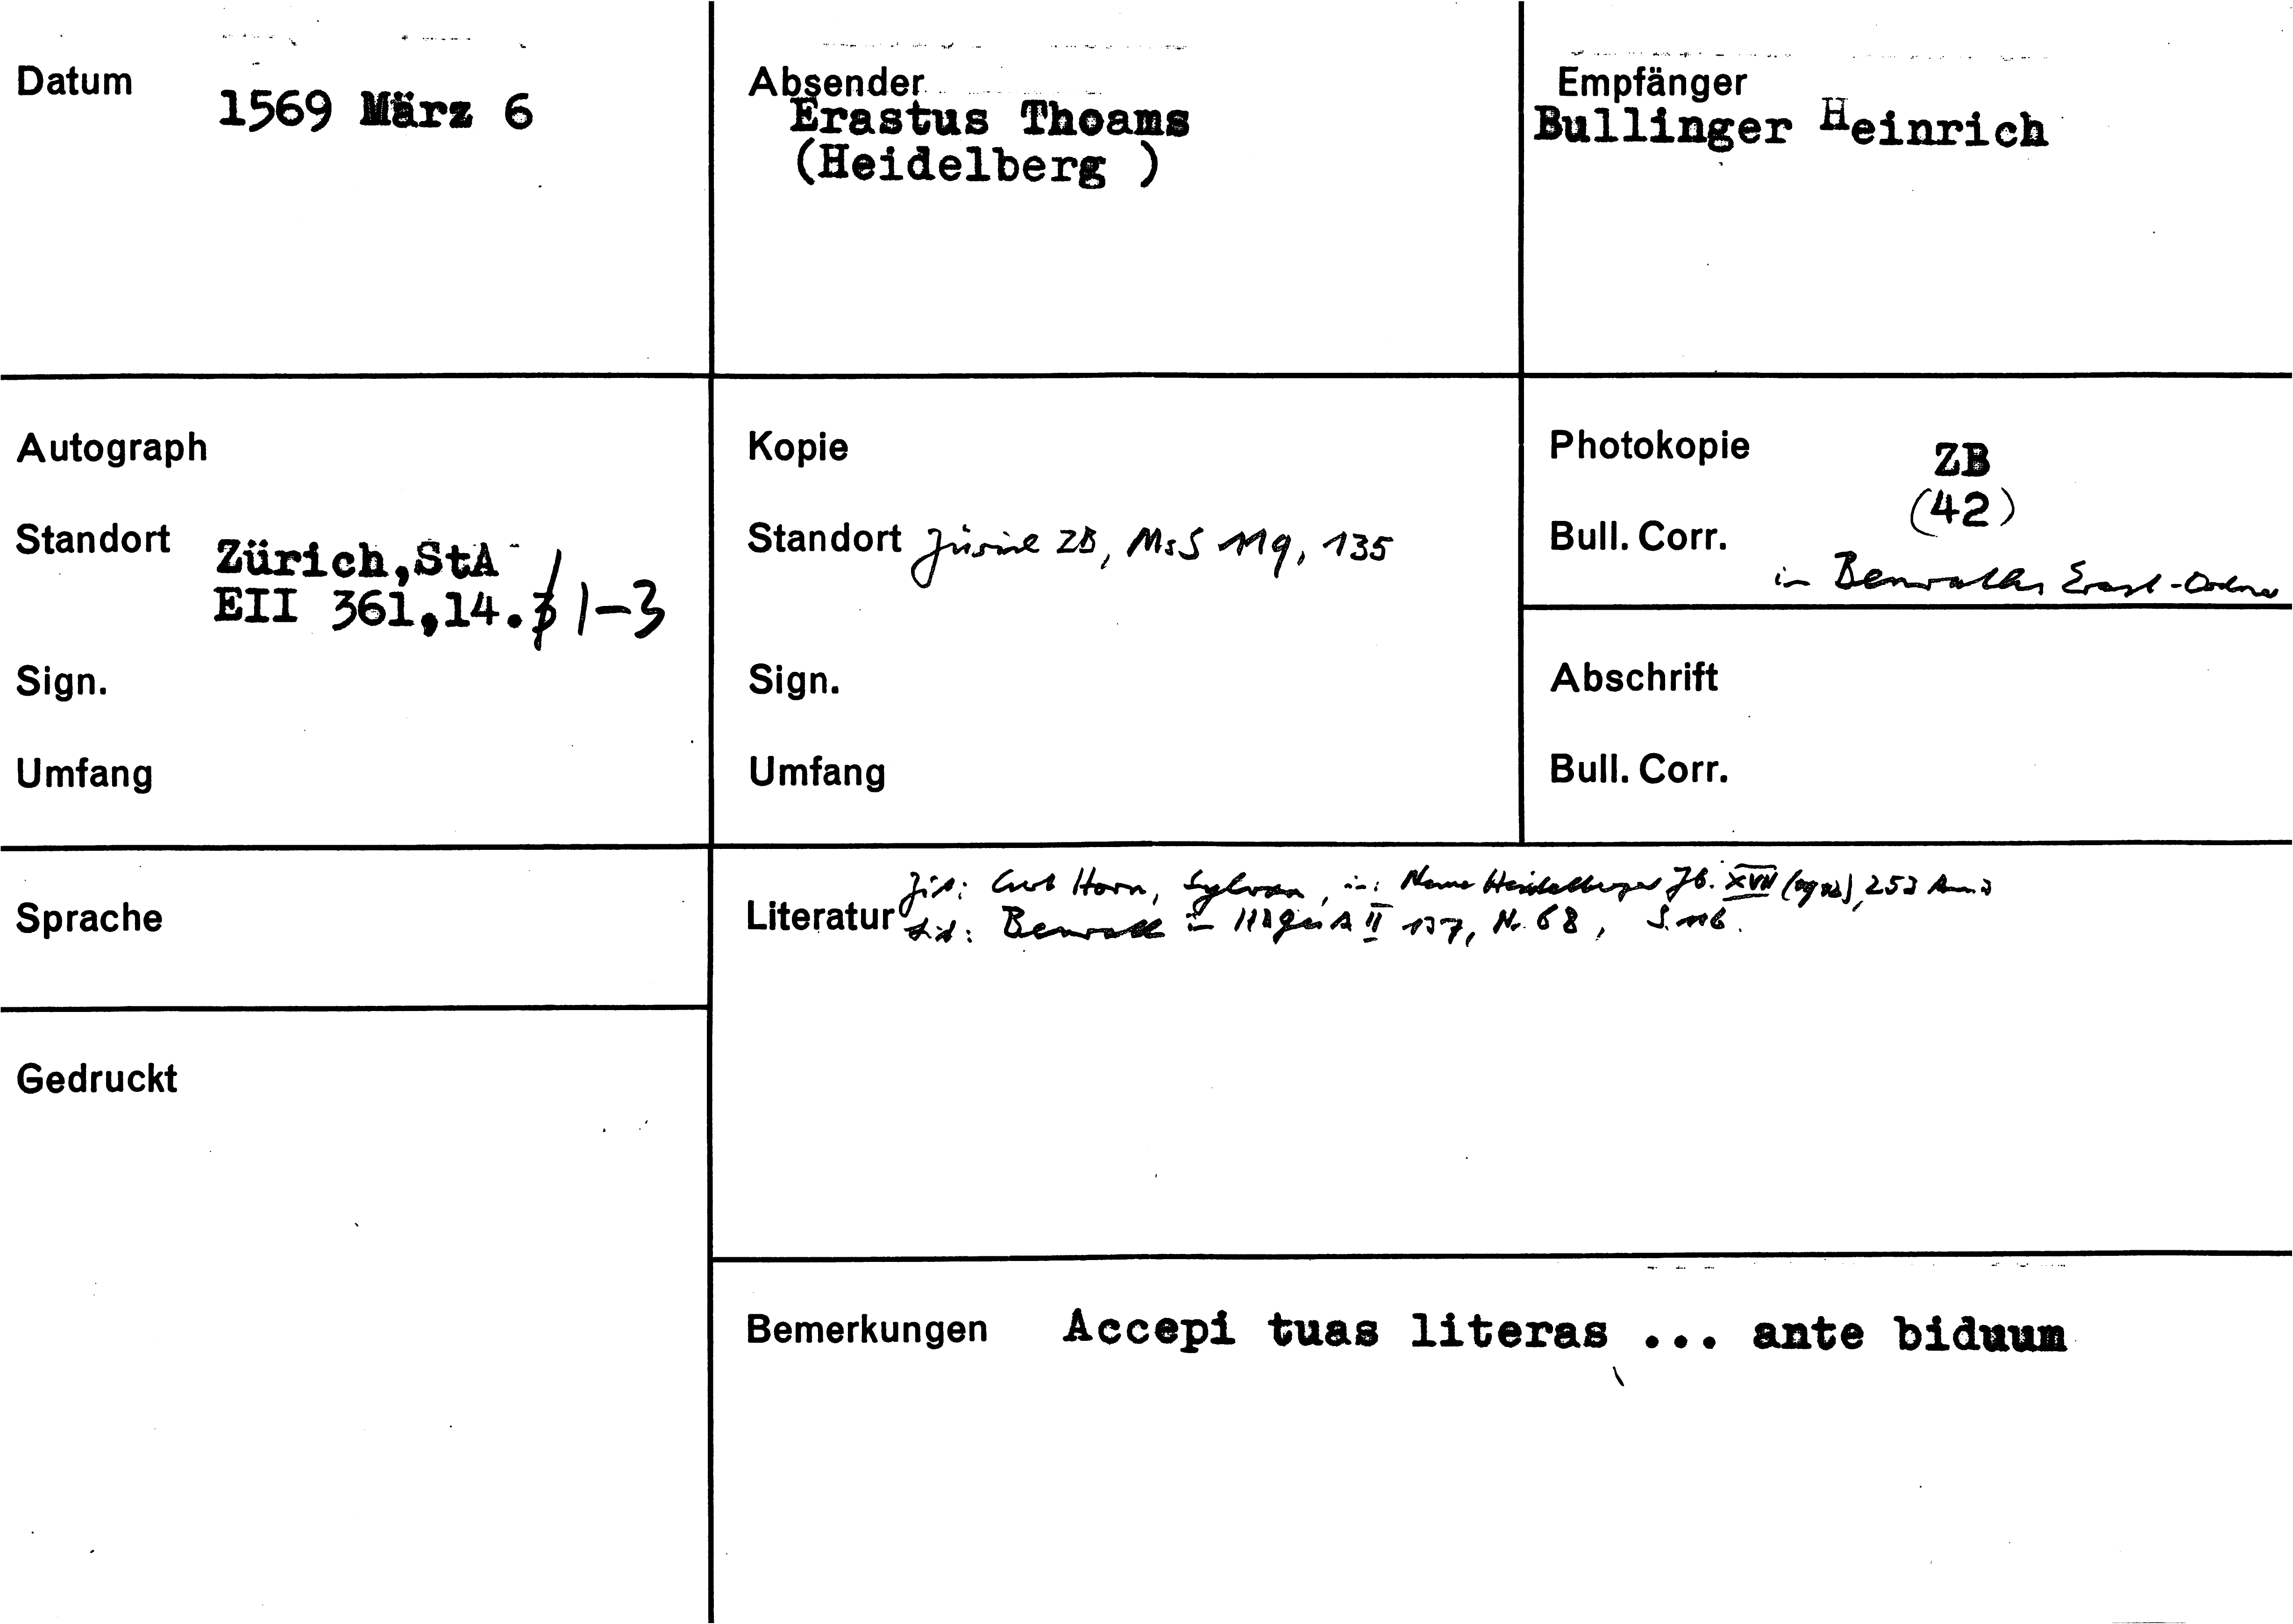 Datum
1569 März 6
Absender
Erastus Thoams
(Heidelberg )
Empfänger
Bullinger Heinrich
Autograph
Standort
Zürich,StA
EII 361,14. 1-3
Sign.
Umfang
Kopie
Standort ZB, MsS 119, 135
Sign.
Umfang
Photokopie
ZB
(42)
Bull. Corr.
in
Abschrift
Bull. Corr.
Sprache
Gedruckt
Literatur
Horn, Sylvan, in: Heidelberger Jb. XVII 253
in II 137, Nr. 68, S. 116.
Bemerkungen Accepi tuas literas ... ante biduum